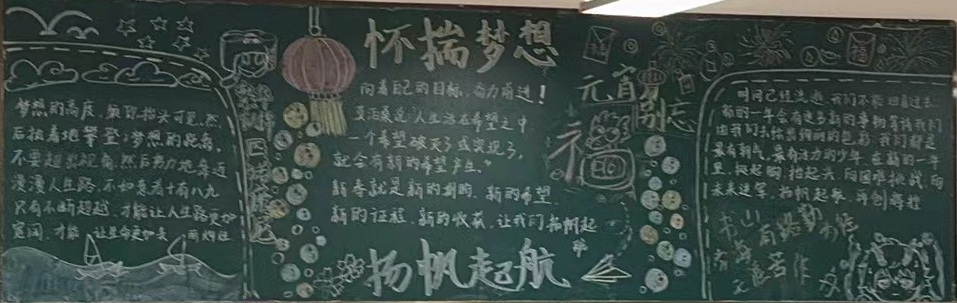 梦想的高度，氧 抬头可见，然
后接着地攀登，梦想的距离，
不要超出视角，然后努力地靠近
漫漫人生路，不如意者十有八九
只有不断超越，才能让人生路更加
宽阔，才能，让生命更加美
怀揣梦想
向着自己的目标，奋力前进！
莫泊桑说"人生活在希望之中
一个希望破灭了或实现了，
就会有新的希望产生。"
新春就是新的 新的希望
新的征程，新的收获，让我们扬帆起
扬帆起航
元宵
别忘
福
时间已经流逝，我们不能回看过去
新的一年会有更多新的事物等待我们
由我们去绘出绚丽的色彩，我们都是
最有朝气，最有活力的少年，在新的一年
里，挺起胸，抬起头，向困难挑战，向
未来进军，扬帆起航，再创辉煌
书山有路勤为径
学海无涯苦作舟